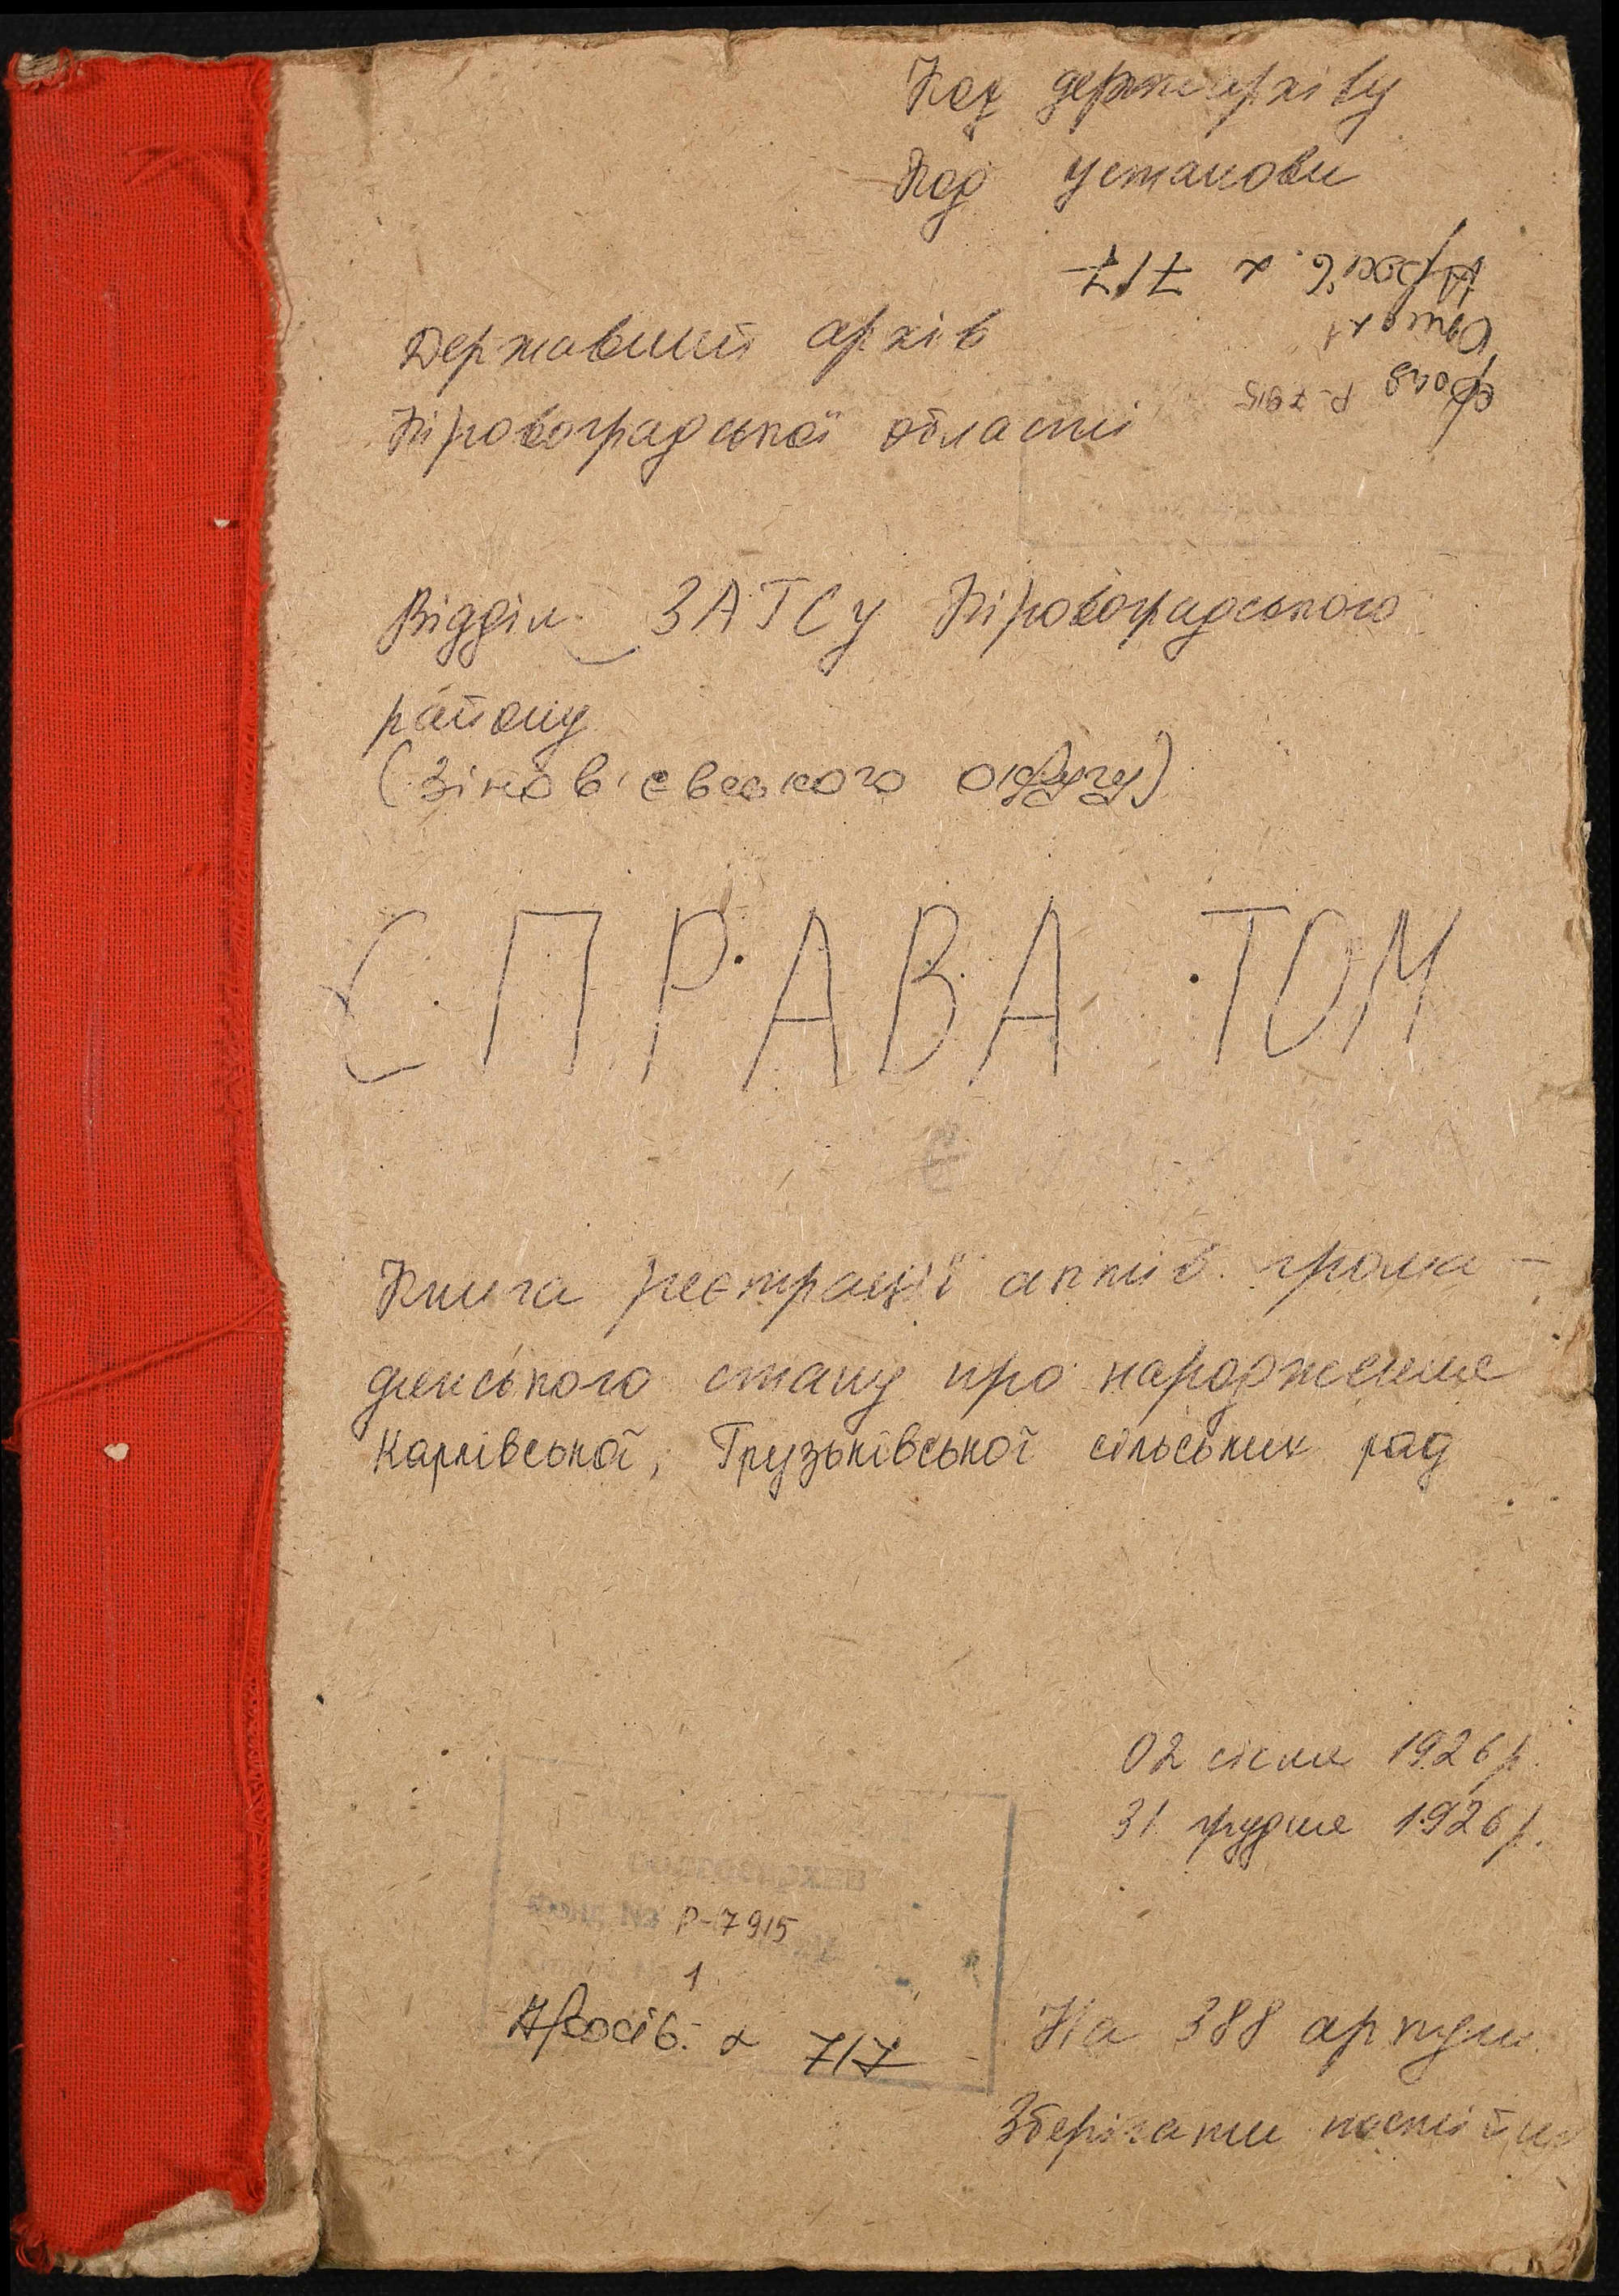 Код держархіву
Код установи
Архів. № 717
Опис № 1
Фонд Р-7915
Державний архів
Кіровоградської області
Відділ ЗАГСу Кіровоградського
району
(Зінов'євського округу)
СПРАВА ТОМ
Книга реєстрації актів грома-
дянського стану про народження
Карлівської, Грузьківської сільських рад
02 січня 1926 р.
31 грудня 1926 р.
Фонд № Р-7915
1
Арх. 717
На 388 аркуш.
Зберігати постійно